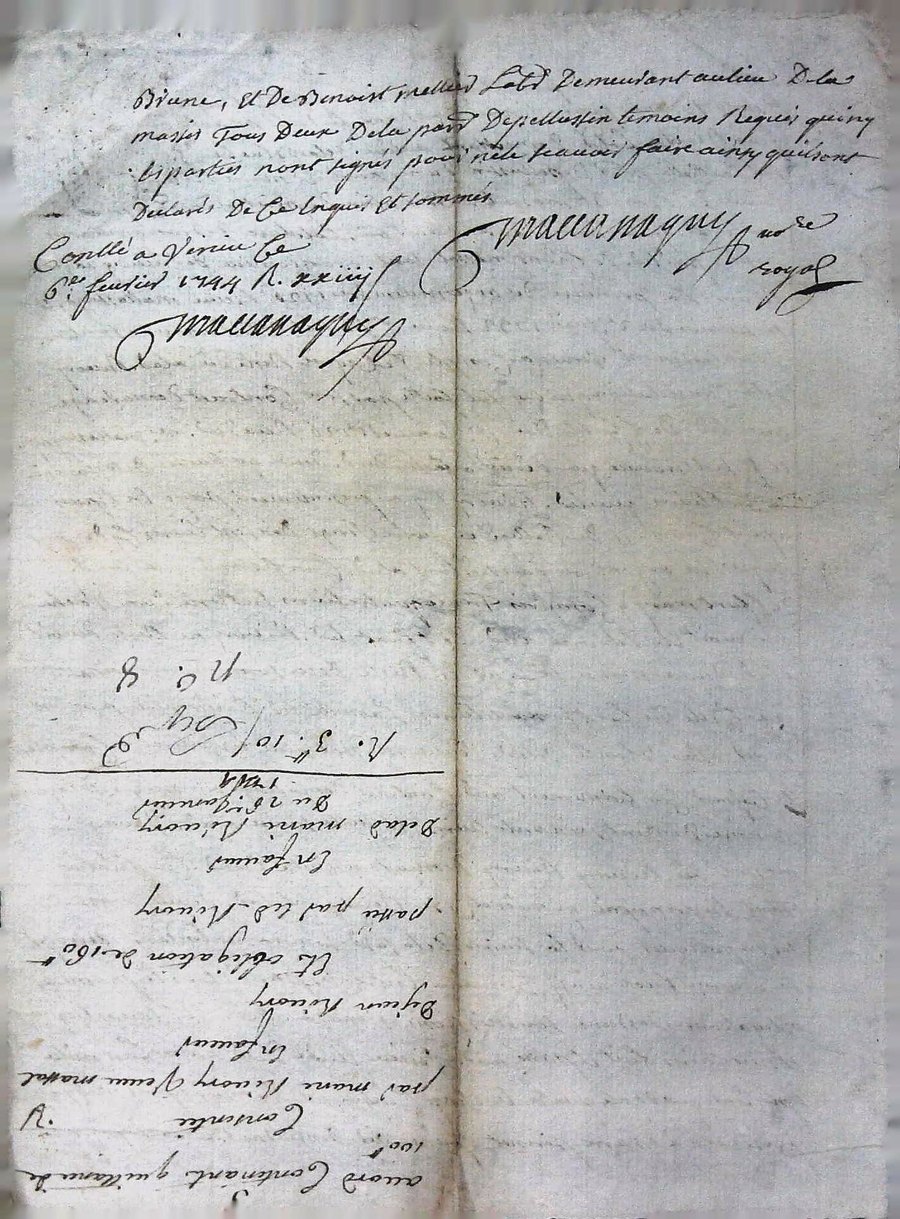 Brune, et De Benoist mellier Labr Demeurant aulieu Dela
masses Tous Deux Dela parr Depellussin temoins Requis quiny
Lsparties nont signés pour nele scauoir faire ainsy quilsont
Declarés De Ce Enquis Et sommés
Maccanaguy no.re
royal
Conllé a Virieu Ce
6.e feurier 1744 R. xxiiij s
Maccanaguy
accord Contenant quittance de
100lt
Consentie
par marie Riuory Veuue massal
En faueur
Dejean Riuory
Et obligation de 160lt
passée par led. Riuory
En faueur
Delad. marie Riuory
Du 26e januier
1744
R. 3lt. 10s